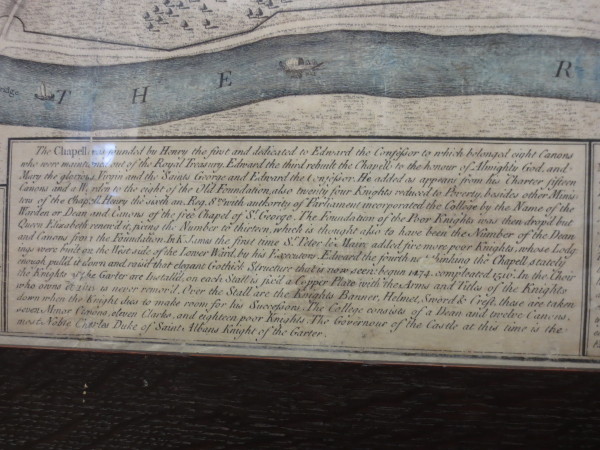 idge.
T H E R
The Chapell was founded by Henry the first and dedicated to Edward the Confessor to which belonged eight Canons
who were maintained out of the Royal Treasury. Edward the third rebuilt the Chapell to the honour of Almighty God, and
Mary the glorious Virgin and the Saints George and Edward the Confessor. He added as appears from his Charter fifteen
Canons and a Warden to the eight of the Old Foundation, also twenty four Knights reduced to Poverty, besides other Minis-
ters of the Chapel. Henry the sixth an. Reg. 8º with authority of Parliament incorporated the College by the Name of the
Warden or Dean and Canons of the free Chapel of St. George. The Foundation of the Poor Knights was then dropd but
Queen Elizabeth renew'd it, fixing the Number to thirteen, which is thought also to have been the Number of the Dean
and Canons from the Foundation. In K. James the first time Sr. Peter le Maire added five more poor Knights, whose Lodg-
ings were built on the West side of the Lower Ward, by his Executors. Edward the fourth not thinking the Chapell stately
enough pull'd it down and rais'd that elegant Gothick Structure that is now seen: begun 1474. compleated
In the Choir
the Knights of the Garter are Install'd, on each Stall is fix'd a Copper Plate with the Arms and Titles of the Knights
who owns it, and is never remov'd. Over the Stall are the Knights Banner, Helmet, Sword & Crest. these are taken
down when the Knight dies to make room for his Successors. The College consists of a Dean and twelve Canons,
seven Minor Canons, eleven Clarks, and eighteen poor Knights. The Governour of the Castle at this time is the
most Noble Charles Duke of Saint Albans Knight of the Garter.